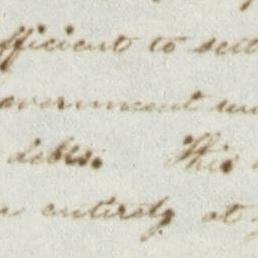 fficient to sett
overnment
debts. This
entirety at